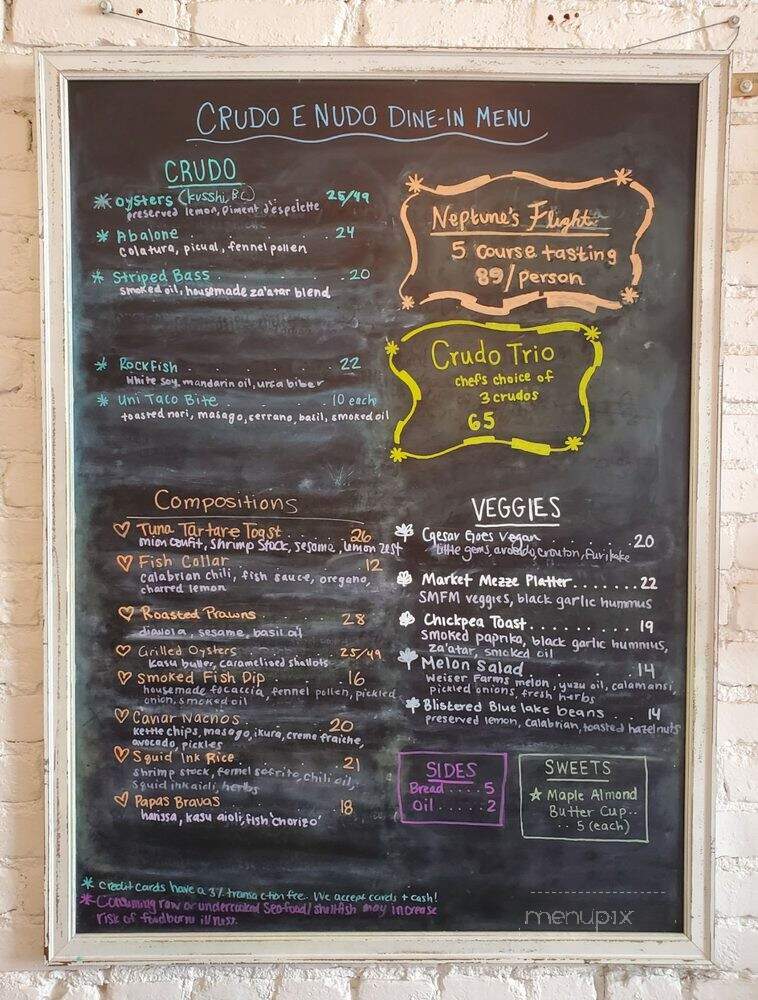 CRUDO E NUDO DINE-IN MENU
CRUDO
* oysters (kusshi, B.C.) 25/49
preserved lemon, piment d'espelette
* Abalone . . . . . 24
colatura, picual, fennel pollen
* Striped Bass . . . . . 20
smoked oil, housemade za'atar blend
* Rockfish . . . . . 22
White soy, mandarin oil, urfa biber
* Uni Taco Bite . . . . . 10 each
toasted nori, masago, serrano, basil, smoked oil
Neptune's Flight
5 course tasting
89/person
Crudo Trio
chef's choice of
3 crudos
65
Compositions
Tuna Tartare Toast 26
confit, shrimp stock, sesame, lemon zest
Fish Collar 12
calabrian chili, fish sauce, oregano,
charred lemon
Roasted Prawns 28
diavola, sesame, basil oil
Grilled Oysters 25/49
kasu butter, caramelised shallots
Smoked Fish Dip . . . 16
housemade focaccia, fennel pollen, pickled
onion, smoked oil
Caviar Nachos . . . 20
kettle chips, masago, ikura, creme fraiche,
avocado, pickles
Squid Ink Rice . . . 21
shrimp stock, fennel sofrito, chili oil,
squid ink aioli, herbs
Papas Bravas 18
harissa, kasu aioli, fish 'chorizo'
VEGGIES
Caesar Goes Vegan . . . . . 20
little gems, avocado, crouton, furikake
Market Mezze Platter....... 22
SMFM veggies, black garlic hummus
Chickpea Toast......... 19
smoked paprika, black garlic hummus,
za'atar, smoked oil
Melon Salad . . . . . 14
Weiser Farms melon, yuzu oil, calamansi,
pickled onions, fresh herbs
Blistered Blue lake beans . . 14
preserved lemon, calabrian, toasted hazelnuts
SIDES
Bread..... 5
Oil ..... 2
SWEETS
☆ Maple Almond
Butter Cup..
.. 5 (each)
* credit cards have a 3% transaction fee. We accept cards + cash!
* Consuming raw or undercooked Seafood/shellfish may increase
risk of foodburn illness.
menupix